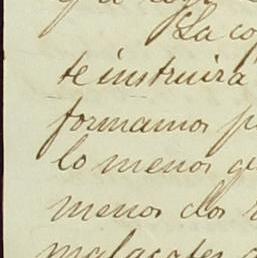 La co
te instruirá
formamos p
lo menos qu
menos dos
malacates